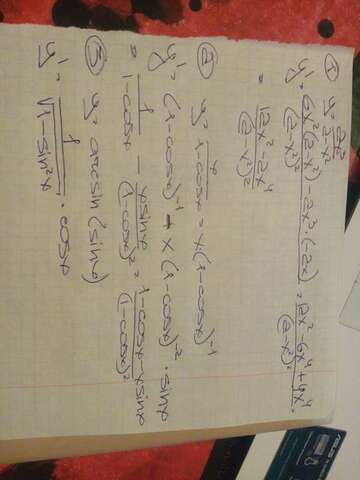 ① y = 2x³/(2-x²)
y' = (6x²(2-x²) - 2x³·(-2x))/(2-x²)² = (12x² - 6x⁴ + 4x⁴)/(2-x²)²
= (12x² - 2x⁴)/(2-x²)²
② y = x/(1-cosx) = x·(1-cosx)⁻¹
y' = (1-cosx)⁻¹ + x(1-cosx)⁻²·sinx
= 1/(1-cosx) - xsinx/(1-cosx)² = (1-cosx-xsinx)/(1-cosx)²
③ y = arcsin(sinx)
y' = 1/√(1-sin²x) · cosx
ASUS